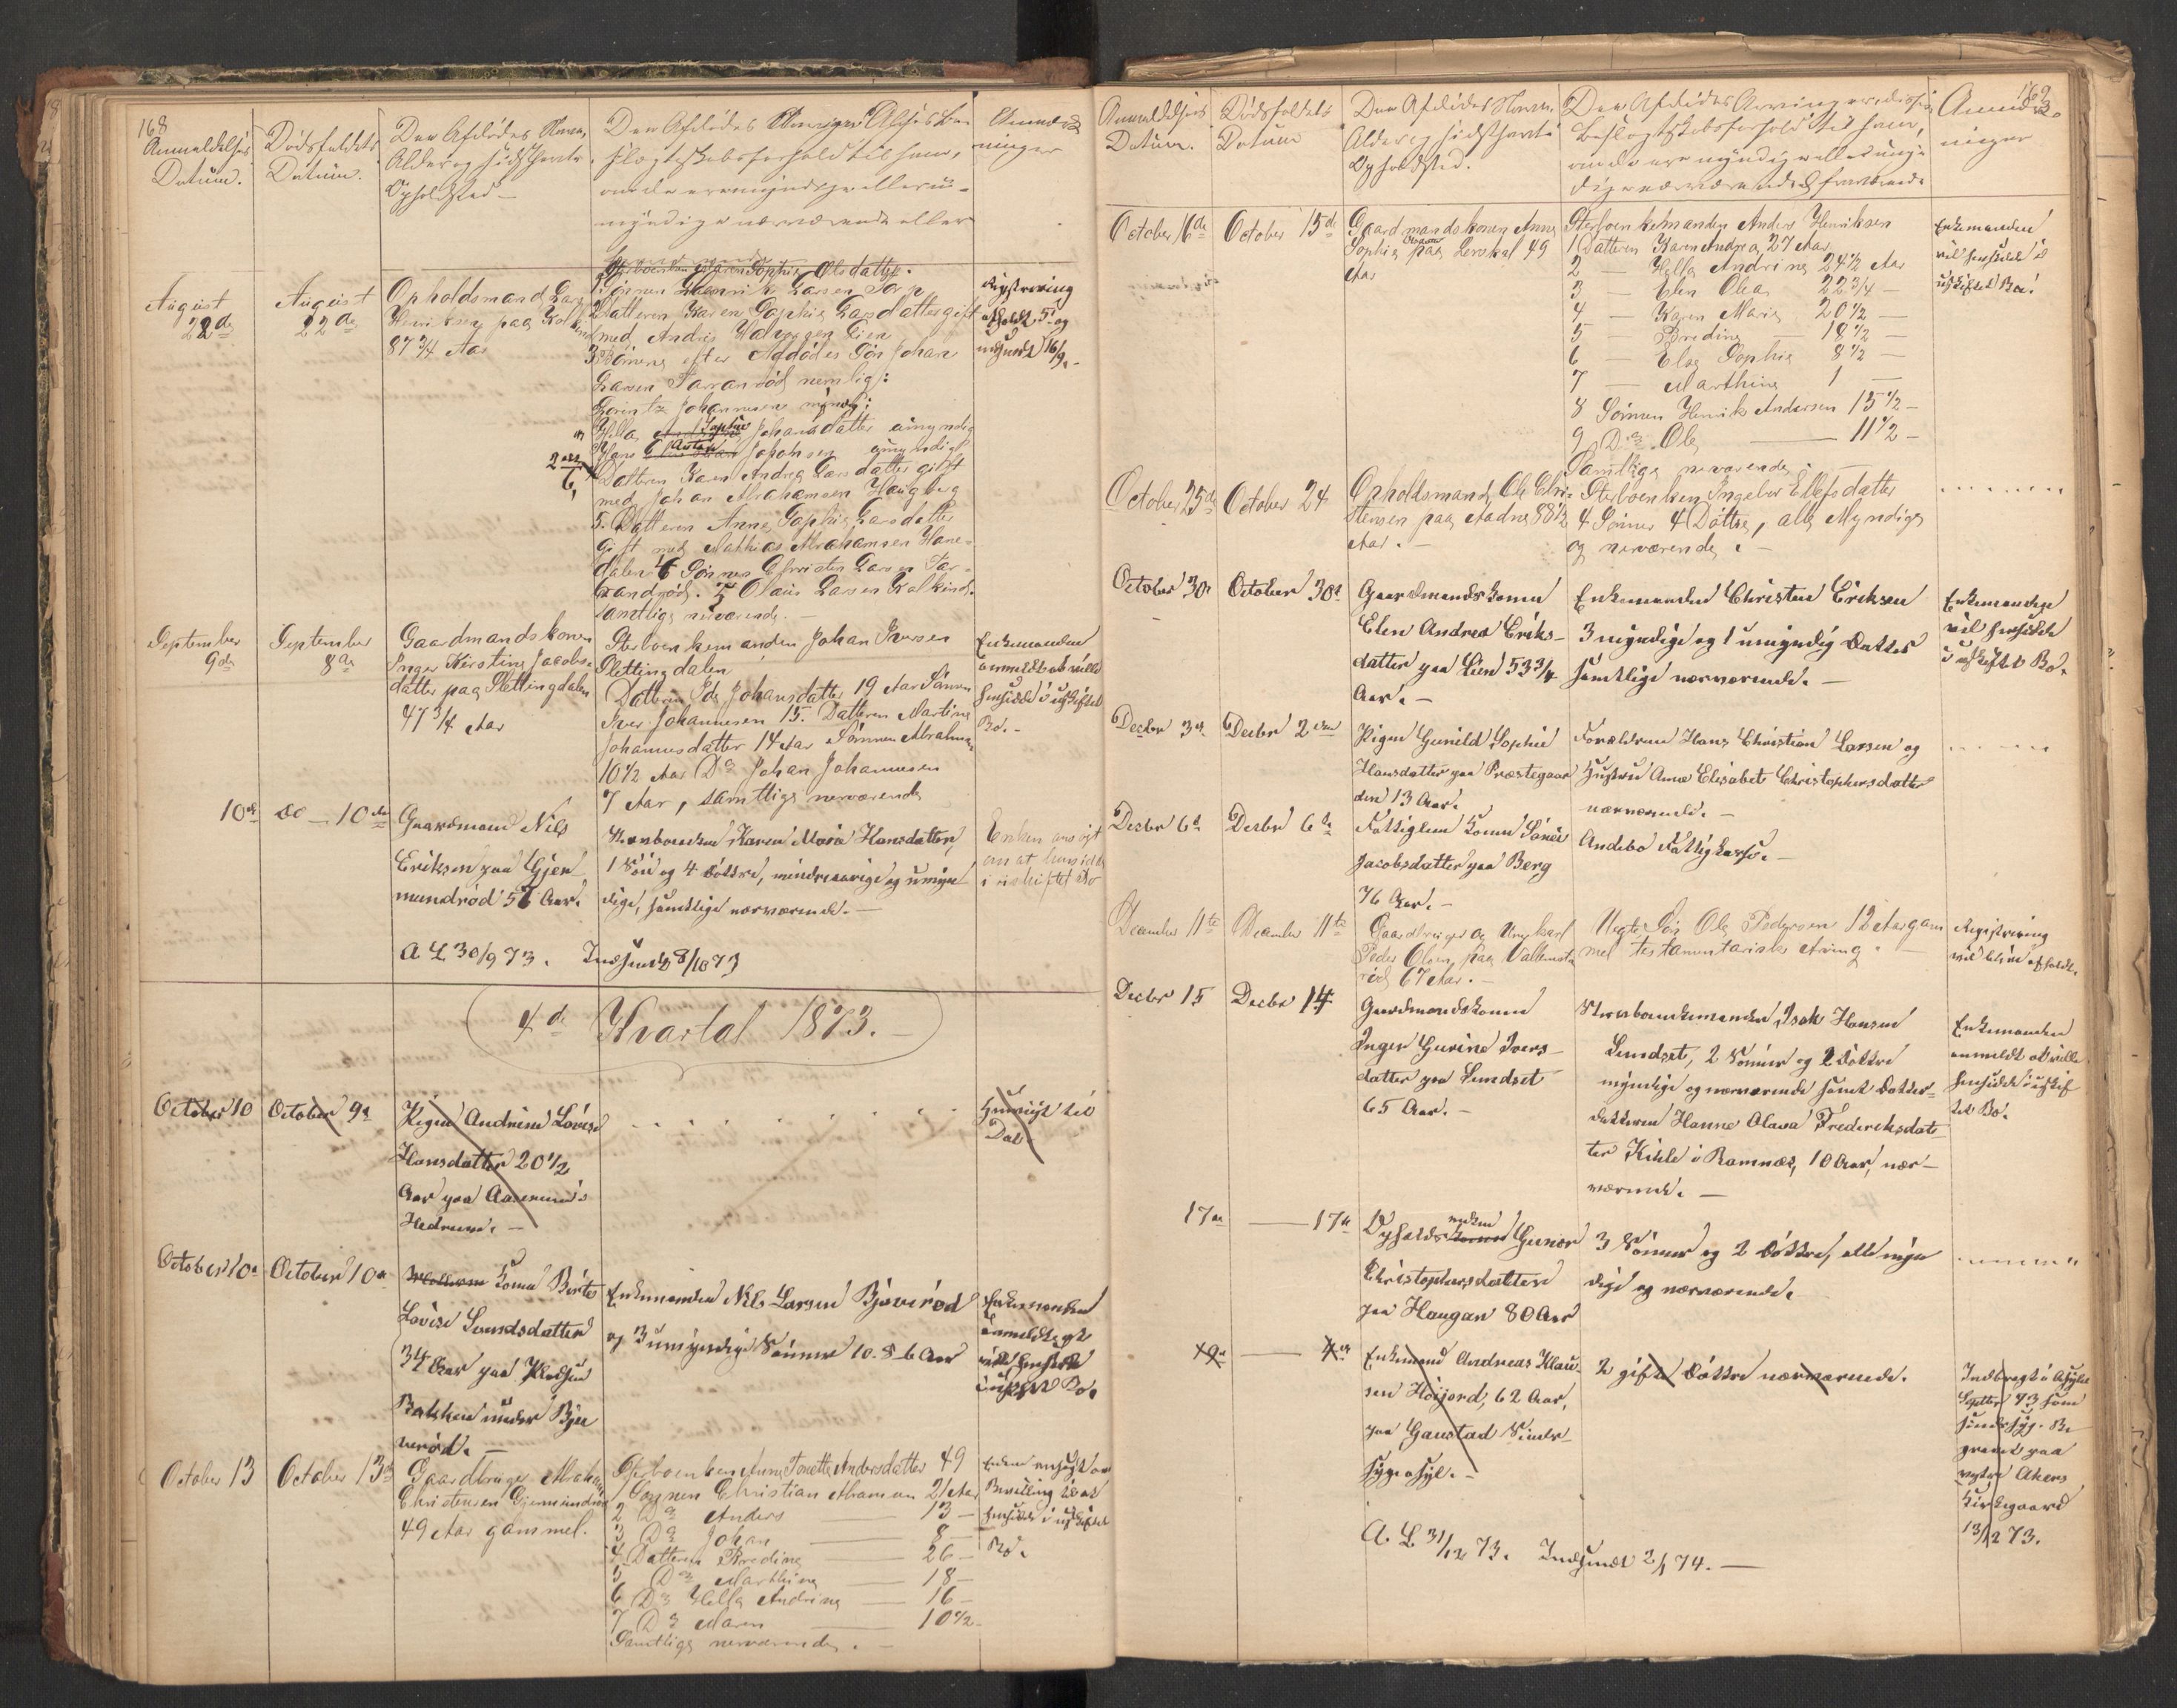 168
Anmeldelses
Datum.
Dødsfaldets
Datum.
Den Afdødes Navn,
Alder og sidst havte
Opholdsted
Den Afdødes
Slægtskabsforhold til ham,
om de ere myndige eller u-
myndige nærværende eller
Anmærk
ninger
August
22de
August
22de
Opholdsmand Lars
Henriksen paa
87 3/4 Aar
Sophie Olsdatter.
1 Sønnen Henrik Larsen Torp
2 Datteren Karen Sophie Larsdatter gift
med Andris Halvorsen Lien
3 Børnene efter Afdødes Søn Johan
Larsen Tarrandrød nemlig:
Lorintz Johannesen myndig;
Hella Sophie Johansdatter umyndig
Hans Anton Johansen umyndig
Datteren Karen Andrea Larsdatter gift
med Johan Abrahamsen Haugberg
5. Datteren Anne Sophie Larsdatter
Gift med Mathias Abrahamsen Hane-
dalen 6 Sønnen Christen Larsen Tar-
randrød. 7 Olaus Larsen
samtlige nærværende.
Registrering
afholdt 5 og
indsendt 16/9.
September
9de
September
8de
Gaardmandskonen
Inger Kirstine Jacobs-
datter paa Slettingdalen
47 3/4 Aar
Sterboenkemanden Johan Iversen
Slettingdalen
Datteren Ida Johansdatter 19 Aar Sønnen
Iver Johannesen 15. Datteren Martine
Johannesdatter 14 Aar Sønnen Abraham
10 1/2 Aar Do Johan Johannesen
7 Aar, samtlige nærværende
Enkemanden
anmeldt at ville
hensidde i uskiftet
Bo.
10de
do — 10de
Gaardmand Nils
Eriksen paa Gjer
mundrød 51 Aar.
Stervboenken Karen Maria Hansdatter,
1 Søn og 4 Døttre, mindreaarige og umyn
dige, samtlige nærværende.
Enken ansøgt
om at hensidde
i uskiftet Bo
A L 30/9 73. Indsendt 8/10 73
4de Kvartal 1873.
October 10
October 9de
Pigen Andrine Lovise
Hansdatter 20 1/2
Aar paa Aasenund i
Hedrum.
Henvist til
Dal
October 10de
October 10de
Kone Birte
Lovise Svendsdatter
34 Aar paa
Bakken under Bju
verød.
Enkemanden Nils Larsen Bjuverød
og 3 umyndige Sønner 10. 8. 6 Aar
Enkemanden
anmeldt at
ville hensidde
i uskiftet Bo.
October 13
October 13de
Gaardbruger Abraham
Christensen Gjermundrød
49 Aar gammel.
Sterboenken Anne Tonette Andersdatter 49
1 Sønnen Christian Abramsen 21 Aar
2 Do Anders — 13 —
3 Do Johan — 8 —
4 Datteren Bredine — 26 —
5 Do Marthine — 18 —
6 Do Hella Andrine — 16 —
7 Do Maren — 10 1/2 —
Samtlige nærværende.
Enken ansøgt om
Bevilling til at
hensidde i uskiftet
Bo.
169
Anmeldelses
Datum.
Dødsfaldets
Datum
Den Afdødes Navn.
Alder og sidsthavte
Opholdsted.
Den Afdødes Arvinger, disses
Beslægtskabsforhold til ham,
om de ere myndige eller umyn
dige nærværende & fraværende
Anmærk
ninger
October 16de
October 15de
Gaardmandskonen Anne
Sophie paa Lerskal 49
Aar
Sterboenkemanden Anders Henriksen
1 Datteren Karen Andrea 27 Aar
2 — Hella Andrine 24 1/2 Aar
3 — Elen Olea 22 3/4 —
4 — Karen Marie 20 1/2 —
5 — Bredine 18 1/2 —
6 — Elag Sophie 8 1/2 —
7 — Marthine 1 —
8 Sønnen Henrik Andersen 15 1/2 —
9 Do Ole — 11 1/2 —
Samtlige nærværende
Enkemanden
vil hensidde i
uskiftet Bo.
October 25de
October 24
Opholdsmand Ole Chri-
stensen paa Aadne 88 1/2
Aar.
Sterboenken Ingebor Ellefsdatter
4 Sønner 4 Døttre, alle Myndige
og nærværende.
October 30de
October 30de
Gaardmandskonen
Elen Andrea Eriks-
datter paa Lien 53 3/4
Aar.
Enkemanden Christen Eriksen
3 myndige og 1 umyndig Datter
samtlige nærværende.
Enkemanden
vil hensidde
i uskiftet Bo.
Decbr 3de
Decbr 2den
Pigen Gunild Sophie
Hansdatter paa Præstegaar
den 13 Aar.
Forældrene Hans Christian Larsen og
Hustru Anne Elisabet Christophersdatter
nærværende.
Decbr 6te
Decbr 6te
Fattiglem Konen
Jacobsdatter paa Berg
76 Aar.
Andebo Fattigkasse.
December 11te
December 11te
Gaardbruger og Ungkarl
Peder Olsen paa Vallemsta
rød 67 Aar.
Uegte Søn Ole Pedersen 12 Aar gam
mel testamentarisk Arving.
Registrering
vil blive afholdt.
Decbr 15
Decbr 14
Gaardmandskonen
Inger Gurine Ivers-
datter paa Sundset
65 Aar.
Stervboenkemanden Isak Hansen
Sundset, 2 Sønner og 2 Døttre
myndige og nærværende samt Datter-
datteren Hanne Olava Fredericksdat-
ter Kihle i Ramnæs, 10 Aar, nær-
værende.
Enkemanden
anmeldt at ville
hensidde i uskif
tet Bo.
17de
— 17de
enken
Opholds Gunor
Christophersdatter
paa Haugan 80 Aar
3 Sønner og 2 Døttre, alle myn
dige og nærværende.
19de
Enkemand Andreas Klau-
sen Høijord, 62 Aar,
paa Gaustad Sinds-
sygeasyl.
2 gifte Døttre nærværende.
Indbragt i Asylet
Septbr 73 som
sindssyg. Be
gravet paa
vestre Akers
Kirkegaard
13/12 73.
A. L 31/12 73. Indsendt 2/1 74.